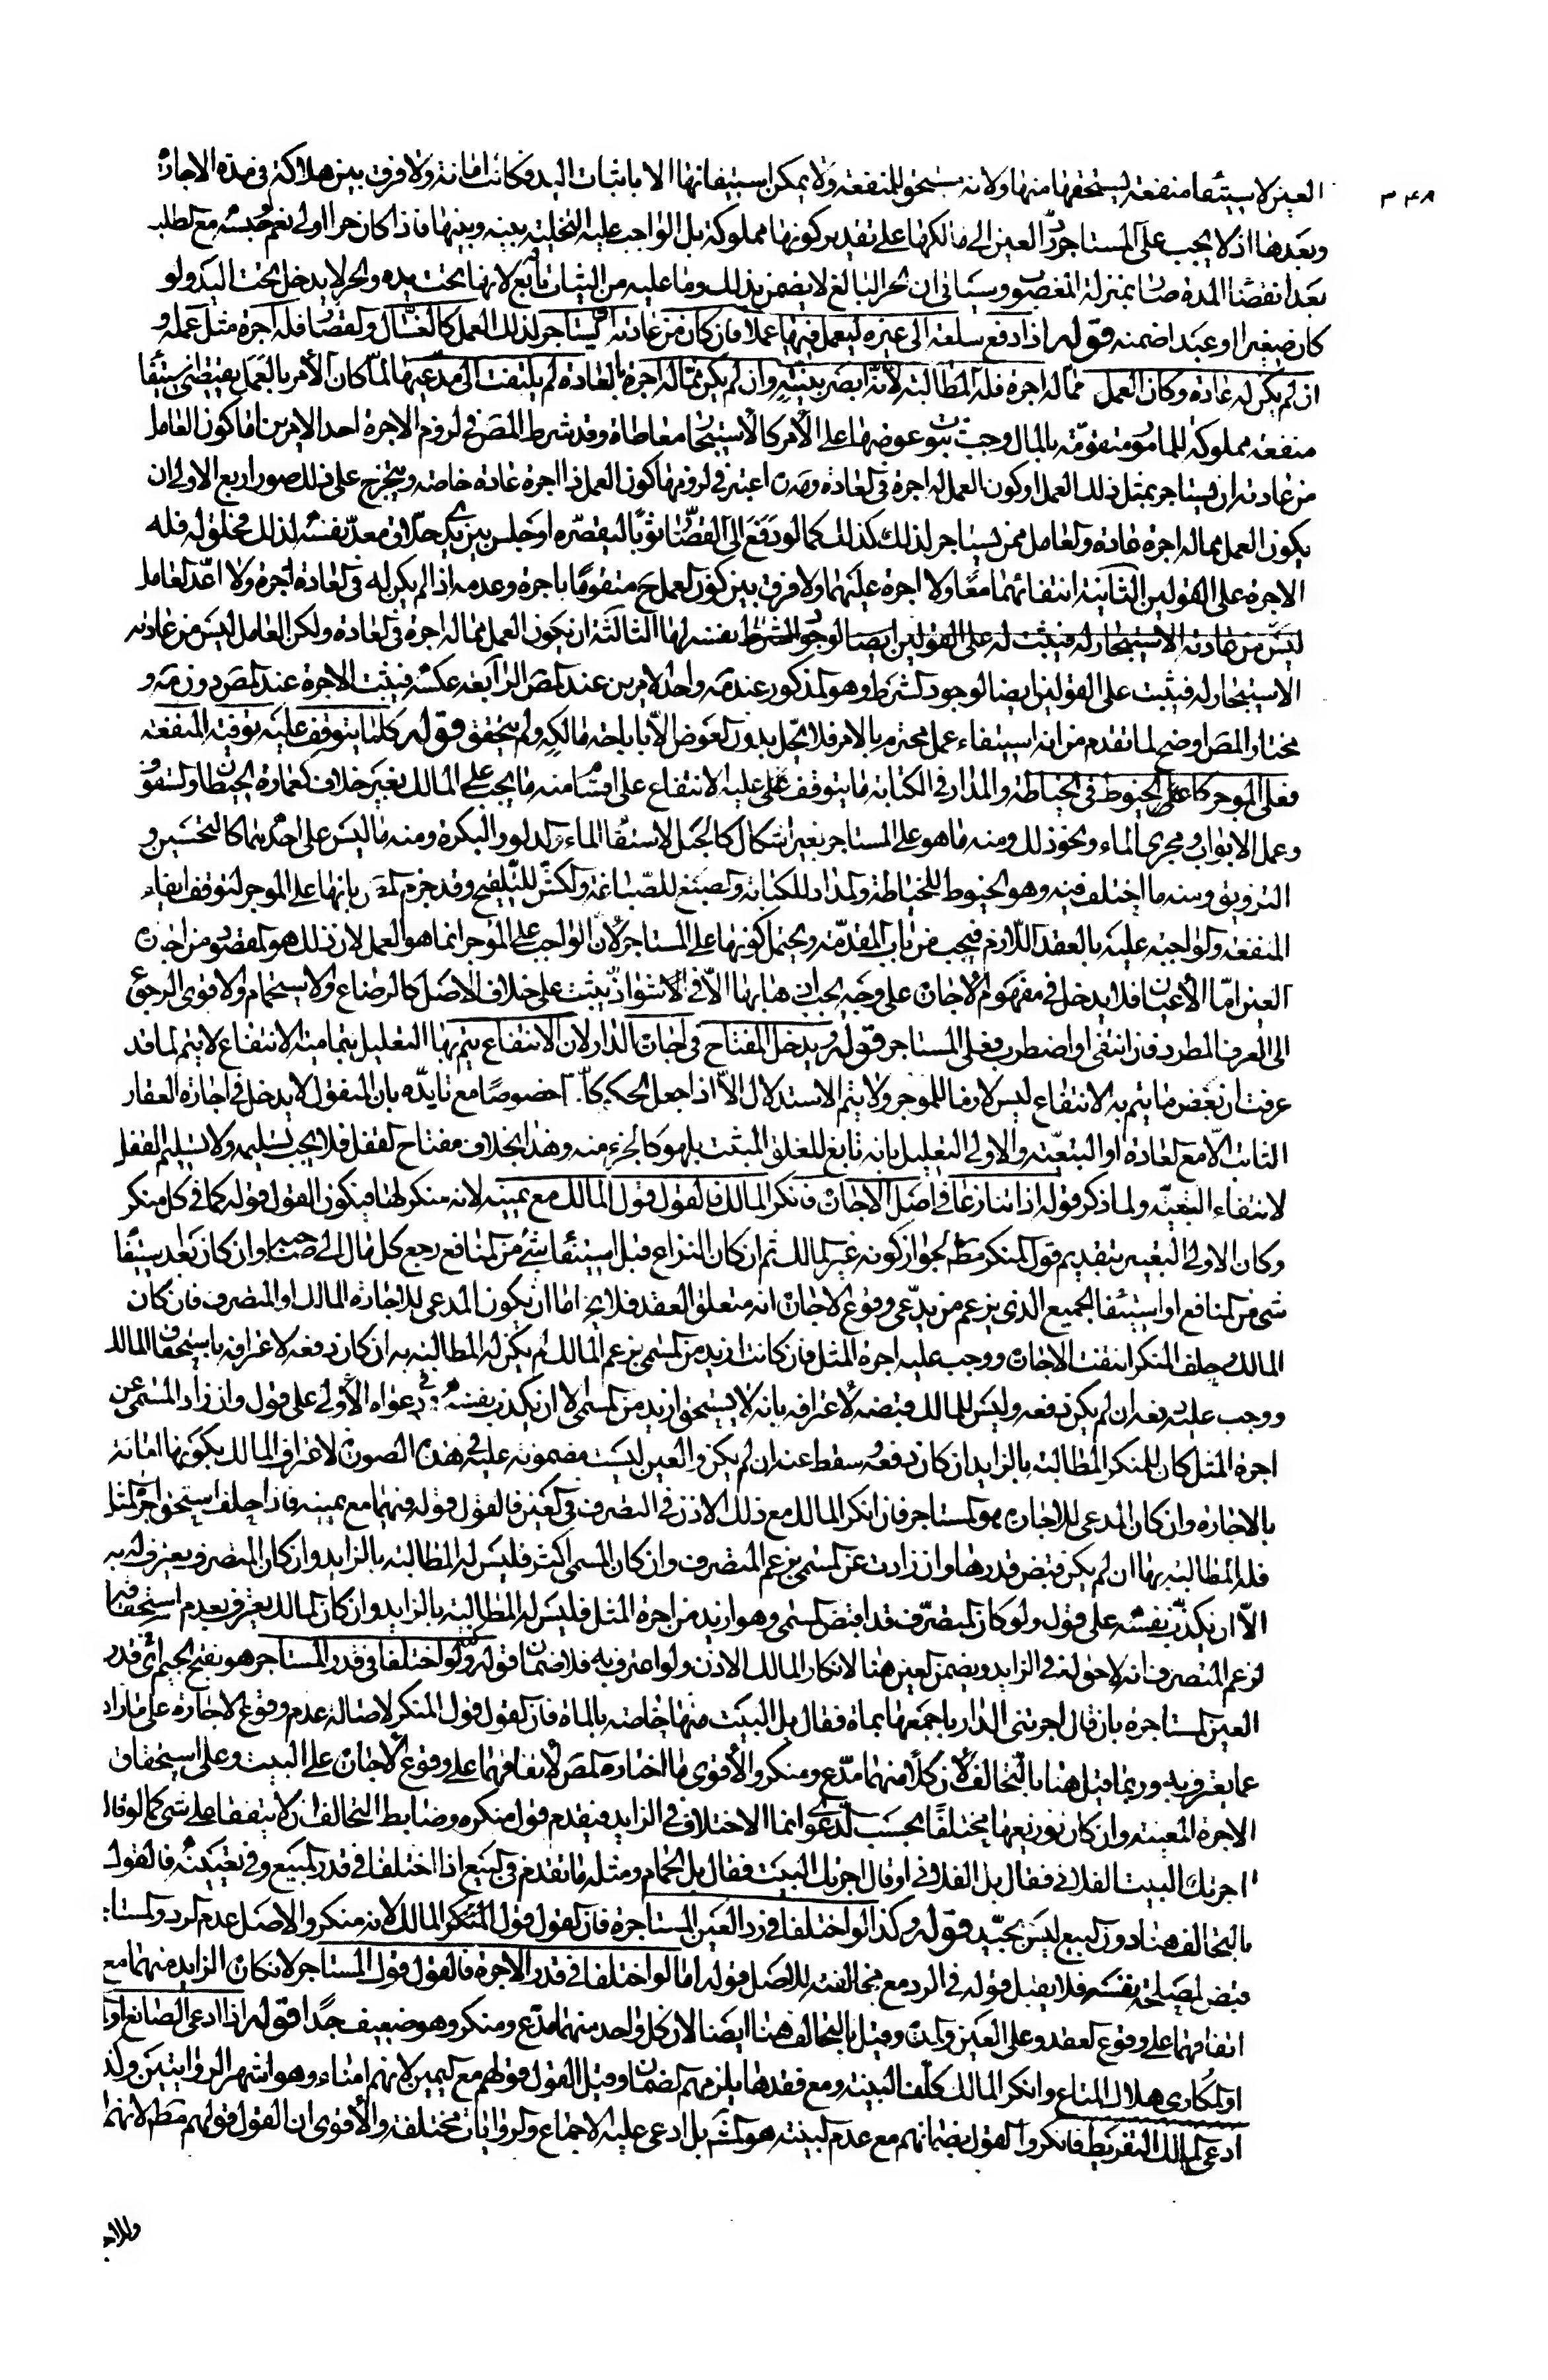 ٣٤٨
العين لاستيفاء منفعة يستحقها منها ولانه يستحق المنفعة ولا يمكن استيفائها الا باثبات اليد فكانت امانة ولا فرق بين هلاكه فى مدة الاجارة
وبعدها اذ لا يجب على المستاجر ردّ العين الى مالكها على تقدير كونها مملوكة بل الواجب عليه التخلية بينه وبينها فاذا كان حرا اولى نعم لو حبسه مع الطلب
بعد انقضاء المدة صار بمنزلة المغصوب وسياتى ان الحر البالغ لا يضمن بذلك وما عليه من الثياب تابع لانها تحت يده والحر لا يدخل تحت اليد ولو
كان صغيرا او عبدا ضمنه قوله اذا دفع سلعة الى غيره ليعمل فيها عملا فان كان من عادته ان يستاجر لذلك العمل كالغسّال والقصّار فله اجرة مثل عمله و
ان لم يكن له عادة وكان العمل مما له اجرة فله المطالبة لانّه ابصر بنيّته وان لم يكن ممّا له اجرة بالعادة لم يلتفت الى مدّعيها لمّا كان الأمر بالعمل يقتضى استيفاء
منفعة مملوكة للمامور متقومّة بالمال وجب ثبوت عوضها على الآمر كالاستيجار معاطاة وقد شرط المصَ فى لزوم الاجرة احد الامرين اما كون العامل
من عادته ان يستاجر بمثل ذلك العمل او كون العمل له اجرة فى العادة وصَه اعتبر فى لزومها كون العمل ذا اجرة عادة خاصّه ويتخرج على ذلك صور اربع الاولى ان
يكون العمل مما له اجرة عادة والعامل ممن يستاجر لذلك كذلك كما لو دَفَعَ الى القصّار ثوبًا ليقصّره او جلس بين يدى حلّاق معدّ نفسه لذلك فحلق له فله
الاجرة على القولين الثانية انتفائهما معًا ولا اجرة عليهما ولا فرق بين كون العمل حَ متقومًا باجرة وعدمه اذا لم يكن له فى العادة اجرة ولا اعّد العامل
ليس من عادته الاستيجار له فيثبت له على القولين ايضا لوجود الشرط نفسه لها الثالثة ان يكون العمل مما له اجرة فى العادة ولكن العامل ليس من عادته
الاستيجار له فيثبت على القولين ايضا لوجود الشرط وهو المذكور عند مَه واحد الامرين عند المصَ الرابعة عكسه فيثبت الاجرة عند المصَ دون مَه و
مختار المصَ اوضح لما تقدم من انه استيفاء عمل محترم بالامر فلا يحّل بدون العوض الّا باباحة مالكه ولم يتحقق قوله كلما يتوقف عليه توفية المنفعة
فعلى الموجر كالخيوط فى الخياطة والمداد فى الكتابة ما يتوقف عليه الانتفاع على اقسام منه ما يجب على المالك بغير خلاف كعمارة الحيطان والسقوف
وعمل الابواب ومجرى الماء ونحو ذلك ومنه ما هو على المستاجر بغير اشكال كالحبل لاستقاء الماء والدلو والبكرة ومنه ما ليس على احدهما كالتحسين و
التزويق ومنه ما اختلف فيه وهو الخيوط للخياطة والمداد للكتابة والصبغ للصّباغة والكش للتّلقيح وقد جزم المصَ بانها على الموجر لتوقف ايفاء
المنفعة الواجبة عليه بالعقد اللّازم فيجب من باب المقدّمة ويحتمل كونها على المستاجر لأن الواجب على الموجر انما هو العمل لان ذلك هو المقصود من اجارة
العين امّا الأعيان فلا يدخل فى مفهوم الاجارة على وجه يجب اذهابها الّا فى الشواذّ يثبت على خلاف الاصل كالرضاع والاستحمام والاقوى الرجوع
الى العرف المطرد فان انتفى او اضطرب فعلى المستاجر قوله ويدخل المفتاح فى اجارة الدار لان الانتفاع يتم بها التعليل بتمامية الانتفاع لا يتم لما قد
عرفت ان بعض ما يتم به الانتفاع ليس لازما للموجر ولا يتم الاستدلال الّا اذا جعل الحكم كلّيا خصوصًا مع تايدّه بان المنقول لا يدخل فى اجارة العقار
الثابت الّا مع العادة او التبعيّة والاولى التعليل بانه تابع للغلق المثبت بل هو كالجزء منه وهذا بخلاف مفتاح القفل فلا يجب تسليمه ولا تسليم القفل
لانتفاء التبعيّة ولما ذكر قوله اذا تنازعا فى اصل الاجارة فانكر المالك فالقول قول المالك مع يمينه لانه منكر لها فيكون القول قوله كما فى كل منكر
وكان الاولى التعبير بتقديم قول المنكر مطَ لجواز كونه غير المالك ثم ان كان النزاع قبل استيفاء شىء من المنافع رجع كل مال الى صاحبه وان كان بعد استيفاء
شىء من المنافع او استيفاء الجميع الذى يزعم من يدّعى وقوع الاجارة انه متعلق العقد فلا يخ اما ان يكون المدعى للاجارة المالك او المتصرف فان كان
المالك وحلف المنكر انتفت الاجارة ووجب عليه اجرة المثل فان كانت ازيد من المسمى بزعم المالك لم يكن له المطالبة به ان كان دفعه لاعترافه باستحقاق المالك
ووجب عليه دفعه ان لم يكن دفعه وليس للمالك قبضه لاعترافه بانه لا يستحق ازيد من المسمى الا ان يكذب نفسه فى دعواه الاولى على قول وان زاد المسمى عن
اجرة المثل كان للمنكر المطالبة بالزايد ان كان دفعه وسقط عنه ان لم يكن والعين ليست مضمونة عليه فى هذه الصورة لاعتراف المالك بكونها امانة
بالاجارة وان كان المدعى للاجارة هو المستاجر فان انكر المالك مع ذلك الاذن فى التصرف فى العين فالقول قوله فيهما مع يمينه فاذا حلف استحق اجرة المثل
فله المطالبة بها ان لم يكن قبض قدرها وان زادت عن المسمى بزعم المتصرف وان كان المسمى اكثر فليس له المطالبة بالزايد وان كان المتصرف يعترف له به
الّا ان يكذّب نفسه على قول ولو كان المتصرّف قد اقبض المسمى وهو ازيد من اجرة المثل فليس له المطالبة بالزايد وان كان المالك يعترف بعدم استحقاقه
لزعم المتصرف انه لا حق له فى الزايد ويضمن العين هنا لانكار المالك الاذن ولو اعترف به فلا ضمان قوله ولو اختلفا فى قدر المستاجر هو بفتح الجيم اى قدر
العين المستاجرة بان قال اجرتنى الدار باجمعها بماة فقال بل البيت منها خاصة بالماة فان القول قول المنكر لاصالة عدم وقوع الاجارة على ما زاد
عما يعترف به وربما قيل هنا بالتحالف لان كلًّا منهما مدّع ومنكر والأقوى ما اختاره المصَ لاتفاقهما على وقوع الاجارة على البيت وعلى استحقاق
الاجرة المعينة وان كان توزيعها مختلفًا بحسب الدّعوى انما الاختلاف فى الزايد فيقدم قول منكره وضابط التحالف ان لا يتفقا على شىء كما لو قال
اجرتك البيت الفلانى فقال بل الفلانى او قال اجرتك البيت فقال بل الحمام ومثله ما تقدم فى البيع اذا اختلفا فى قدر المبيع وفى تعيينه فالقول
بالتحالف هنا دون البيع ليس بجيّد قوله وكذا لو اختلفا فى رد العين المستاجرة فان القول قول المالك لانه منكر والاصل عدم الرد والمستا
قبض لمصلحة نفسه فلا يقبل قوله فى الرد مع مخالفته للاصل قوله اما لو اختلفا فى قدر الاجرة فالقول قول المستاجر لانكاره الزايد منهما مع
اتفاقهما على وقوع العقد وعلى العين والمدة وقيل بالتحالف هنا ايضا لان كل واحد منهما مدّع ومنكر وهو ضعيف جدًا قوله اذا ادعى الصانع او
او المكارى هلاك المتاع وانكر المالك كلّفوا البينة ومع فقدها يلزمهم الضمان وقيل القول قولهم مع اليمين لانهم امناء وهو اشهر الروايتين وكذ
ادعى المالك التفريط فانكروا القول بضمانهم مع عدم البينة هو المشَ بل ادعى عليه الاجماع والروايات مختلفة والأقوى ان القول قولهم مطَ لانهم